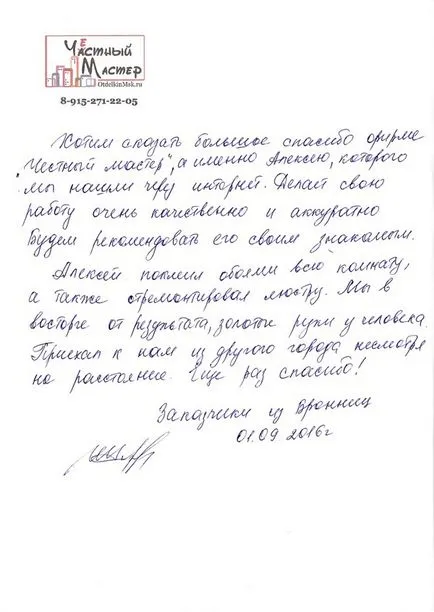 Честный
Мастер
OtdelkinMsk.ru
8-915-271-22-05
Хотим сказать большое спасибо фирме
"Честный мастер", а именно Алексею, которого
мы нашли через интернет. Делает свою
работу очень качественно и аккуратно
Будем рекомендовать его своим знакомым.
Алексей поклеил обоями всю комнату,
а также отремонтировал люстру. Мы в
восторге от результата, золотые руки у человека.
Приехал к нам из другого города несмотря
на расстояние. Еще раз спасибо!
Заказчики из Бронниц
01.09 2016г